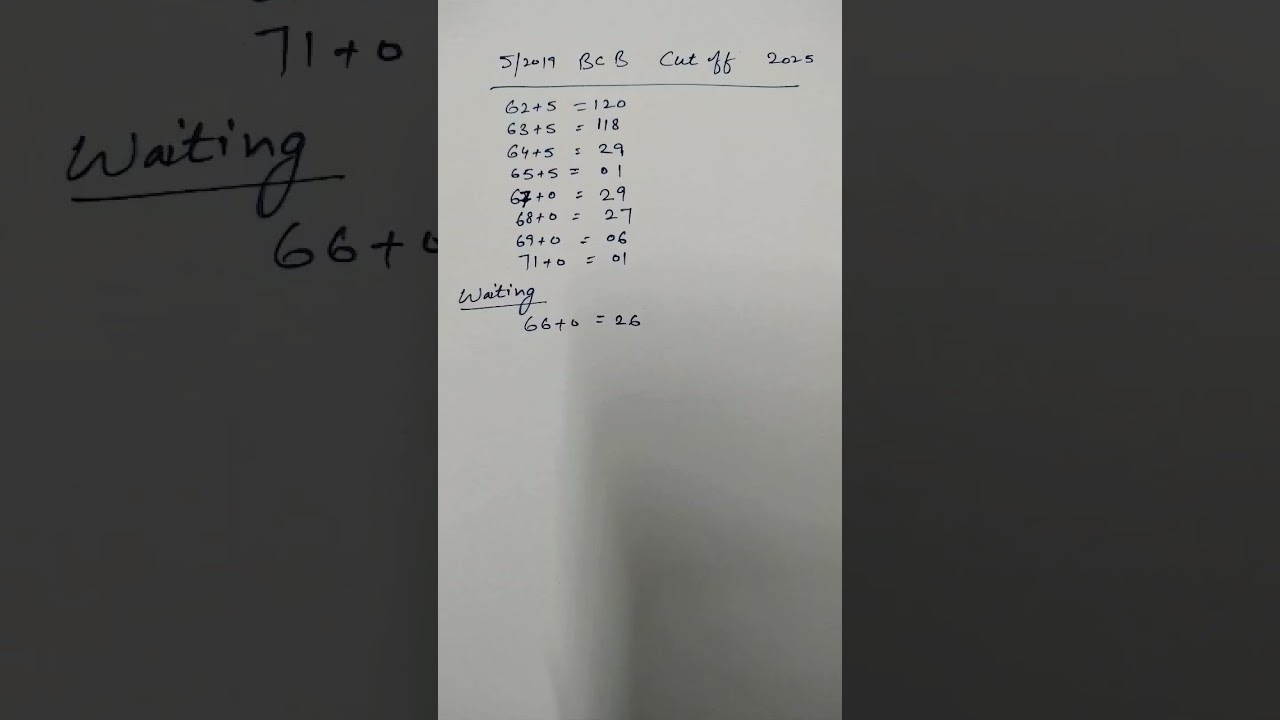 71+0
Waiting
66+0
5/2019 BCB Cut off 2025
62+5 = 120
63+5 = 118
64+5 = 29
65+5 = 01
67+0 = 29
68+0 = 27
69+0 = 06
71+0 = 01
Waiting
66+0 = 26